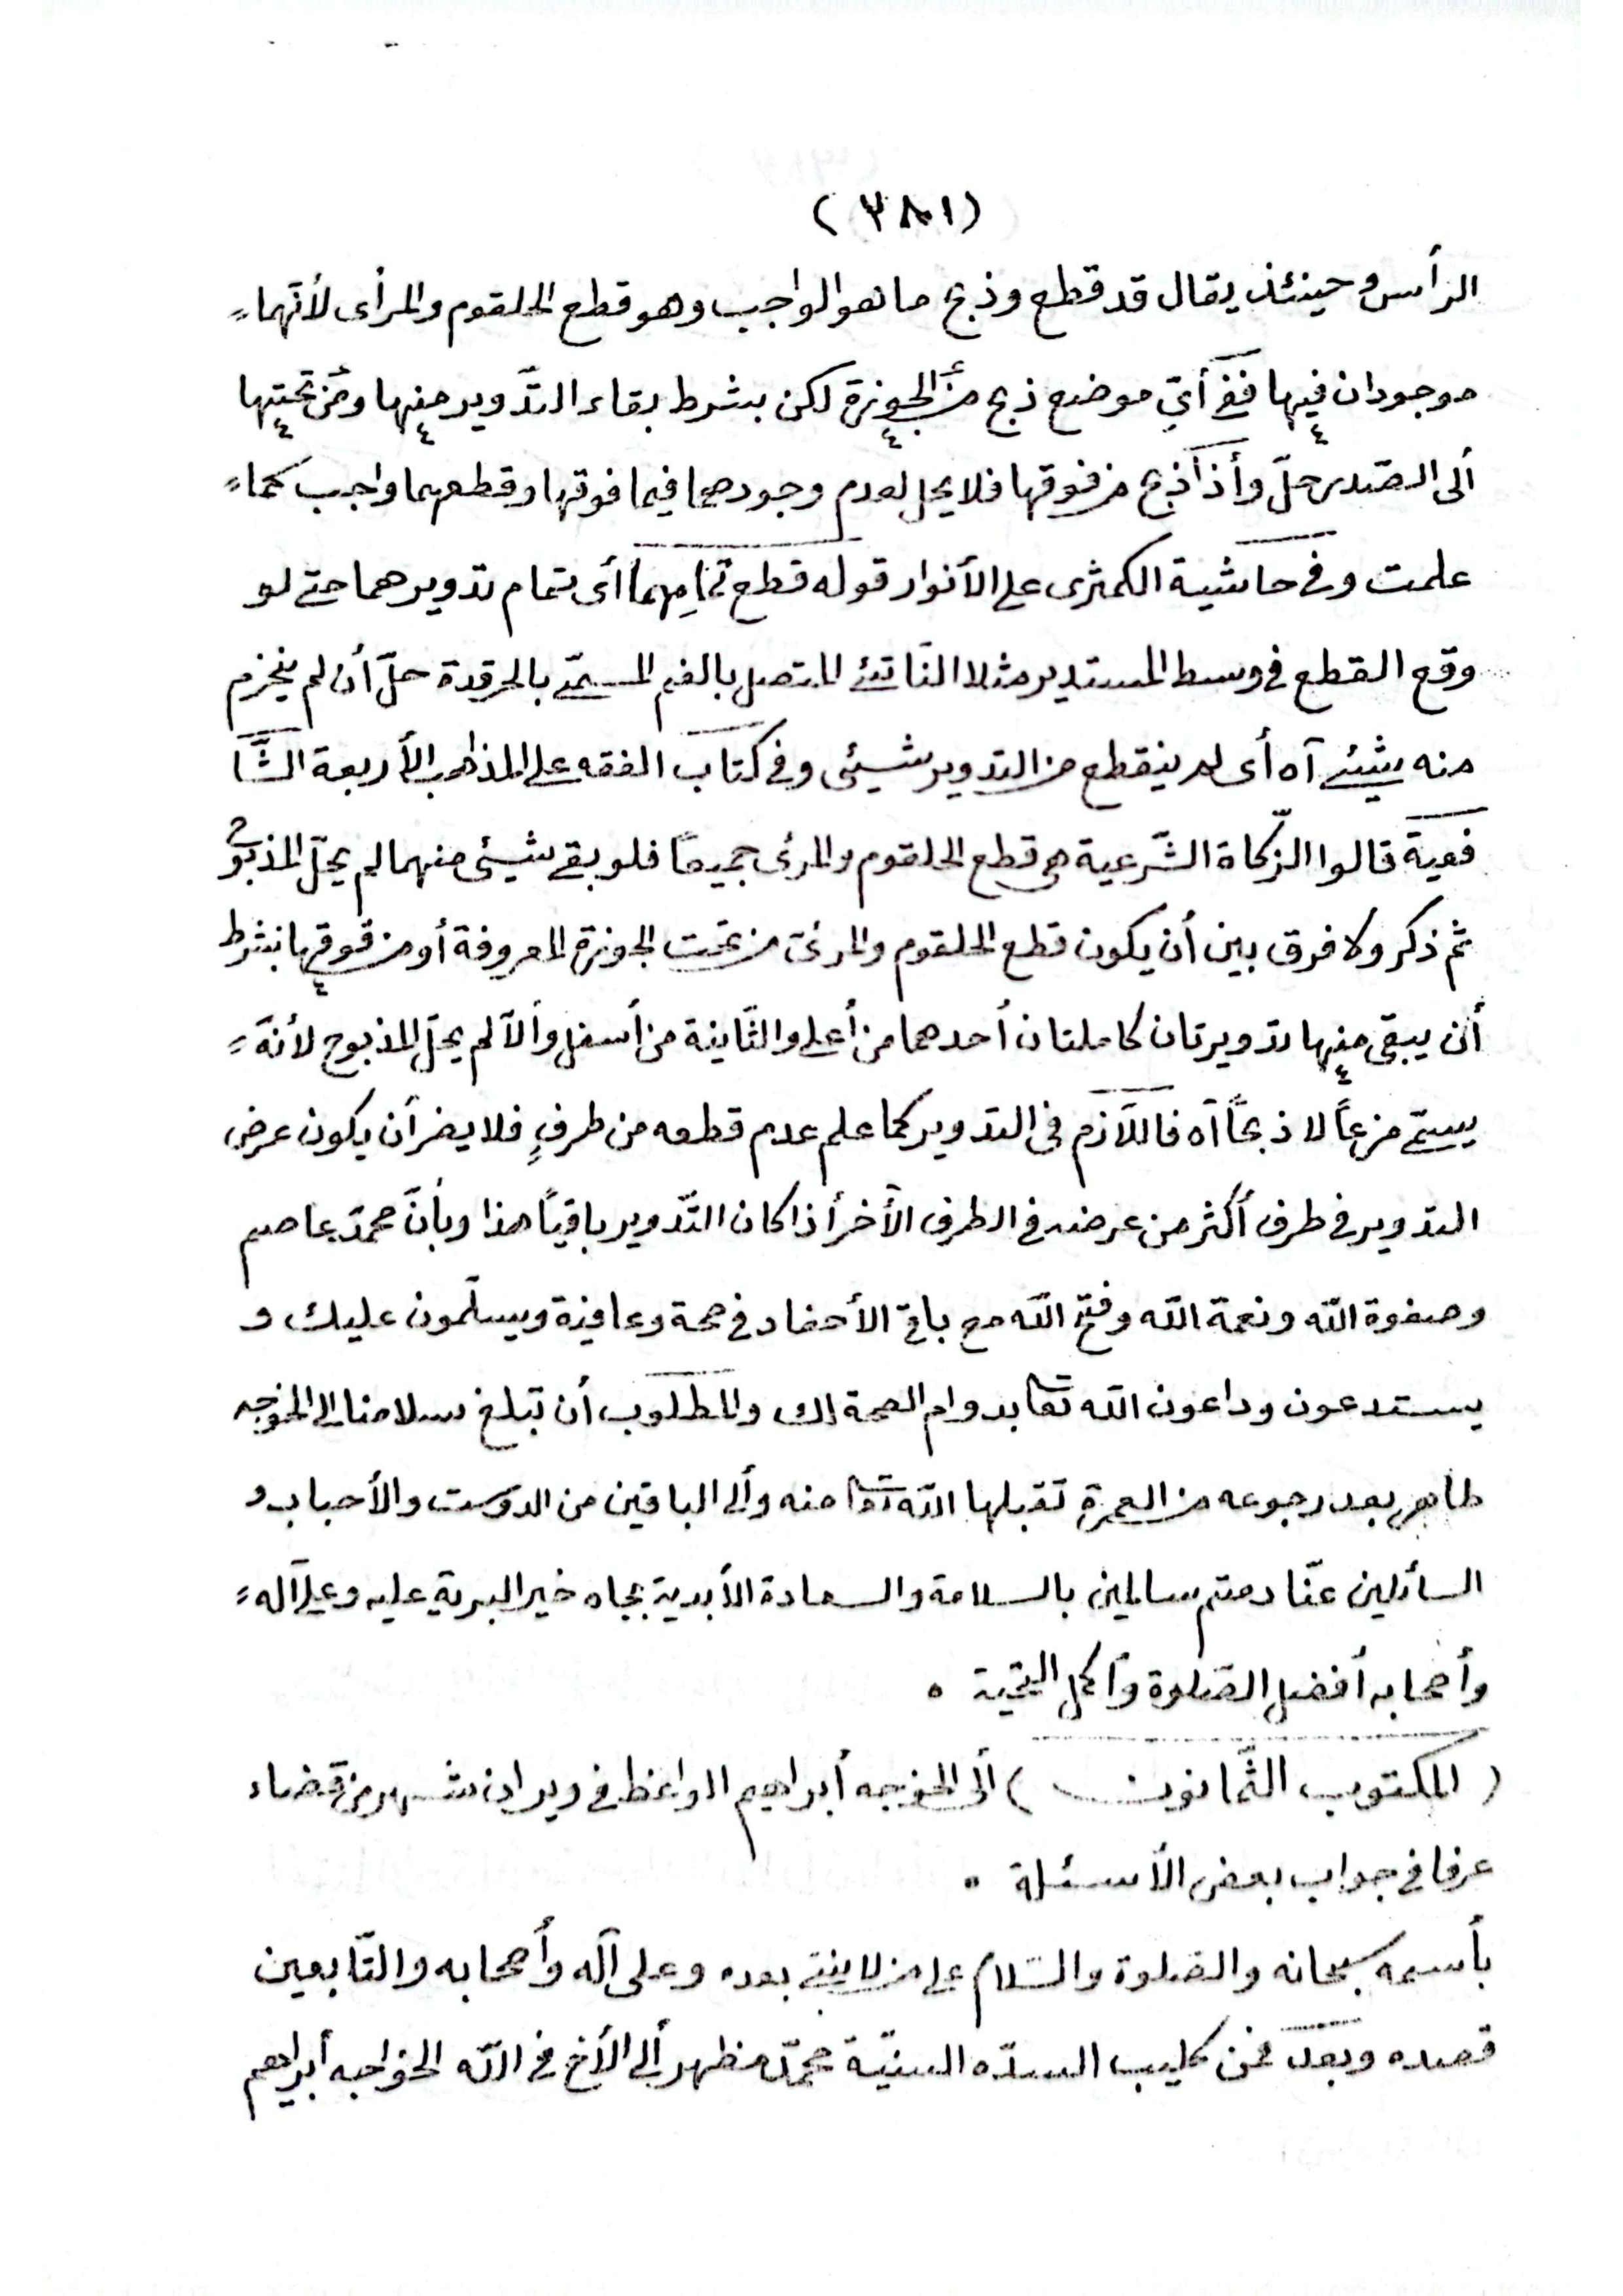 (٣٨١)
الرأس وحينئذ يقال قد قطع وذبح ما هو الواجب وهو قطع الحلقوم والمرأى لأنّهما
موجودان فيها ففى أىّ موضع ذبح من الجوزة لكن بشرط بقاء التّدوير منها ومن تحتها
ألى الصّدر حلّ وأذا ذبح من فوقها فلا يحل لعدم وجودهما فيما فوقها وقطعهما واجب كما
علمت وفى حاشية الكمثرى على الأنوار قوله قطع تمامِهما أى تمام تدويرهما حتى لو
وقع القطع فى وسط المستدير مثلا النّاتئ المتصل بالفم المسمّى بالحرقدة حلّ أن لم ينخرم
منه شيئ آه أى لم ينقطع من التدوير شيئى وفى كتاب الفقه على المذاهب الأربعة الشّا
فعية قالوا الزّكاة الشّرعية هى قطع الحلقوم والمرئى جميعًا فلو بقى شيئى منهما لم يحلّ المذبوح
ثم ذكر ولا فرق بين أن يكون قطع الحلقوم والمرئى من تحت الجوزة المعروفة أو من فوقها بشرط
أن يبقى منها تدويرتان كاملتان أحدهما من أعلى والثّانية من أسفل وألّا لم يحلّ المذبوح لأنّه
يسمّى مزعًا لا ذبحًا آه فاللّازم فى التدوير كما علم عدم قطعه من طرفٍ فلا يضر أن يكون عرض
التدوير فى طرف أكثر من عرضه فى الطرف الأخر أذا كان التّدوير باقيًا هذا وبأنّ محمّد عاصم
وصفوة اللّه ونعمة اللّه وفتح اللّه مع باقى الأحفاد فى صحة وعافية ويسلّمون عليك و
يستدعون وداعون اللّه تعا بدوام الصحة لك والمطلوب أن تبلغ سلامنا الى الخوجه
طاهر بعد رجوعه من العمرة تقبلها اللّه تعا منه وألى الباقين من الدّوست والأحباب و
السائلين عنّا دمتم سالمين بالسلامة والسعادة الأبدية بجاه خير البرية عليه وعلى آله
وأصحابه أفضل الصّلوة وأكمل التحية .
( المكتوب الثّمانون ) ألى الخوجه أبراهيم الواعظ فى ويران شهر من قضاء
عرفا فى جواب بعض الأسئلة .
بأسمه سبحانه والصّلوة والسّلام على من لا نبىّ بعده وعلى آله وأصحابه والتّابعين
قصده وبعد فمن كليب السدّه السنيّة محمّد مظهر ألى الأخ فى اللّه الخواجه أبراهيم